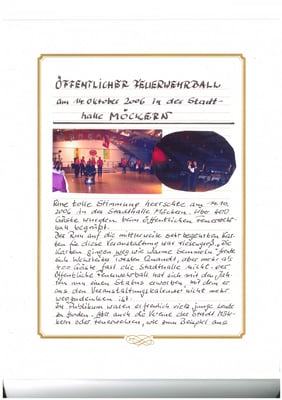 ÖFFENTLICHER FEUERWEHRBALL
am 14. Oktober 2006 in der Stadt-
halle MÖCKERN
Eine tolle Stimmung herrschte am 14.10.
2006 in der Stadthalle Möckern. Über 400
Gäste wurden beim öffentlichen Feuerwehr-
ball begrüßt.
Der Run auf die mittlerweile sehr begehrten Kar-
ten für diese Veranstaltung war riesengroß. „Die
Karten gingen weg wie warme Semmeln"
sich
400 Gäste fast die Stadthalle nicht. Der
öffentliche Feuerwehrball hat sich mit den Jah-
ren einen Status erworben, mit dem er
aus dem Veranstaltungskalender nicht mehr
wegzudenken ist.
Im Publikum waren erfreulich viele junge Leute
zu finden. Aber auch die Vereine der Stadt Mök-
kern oder Feuerwehren, wie zum Beispiel aus